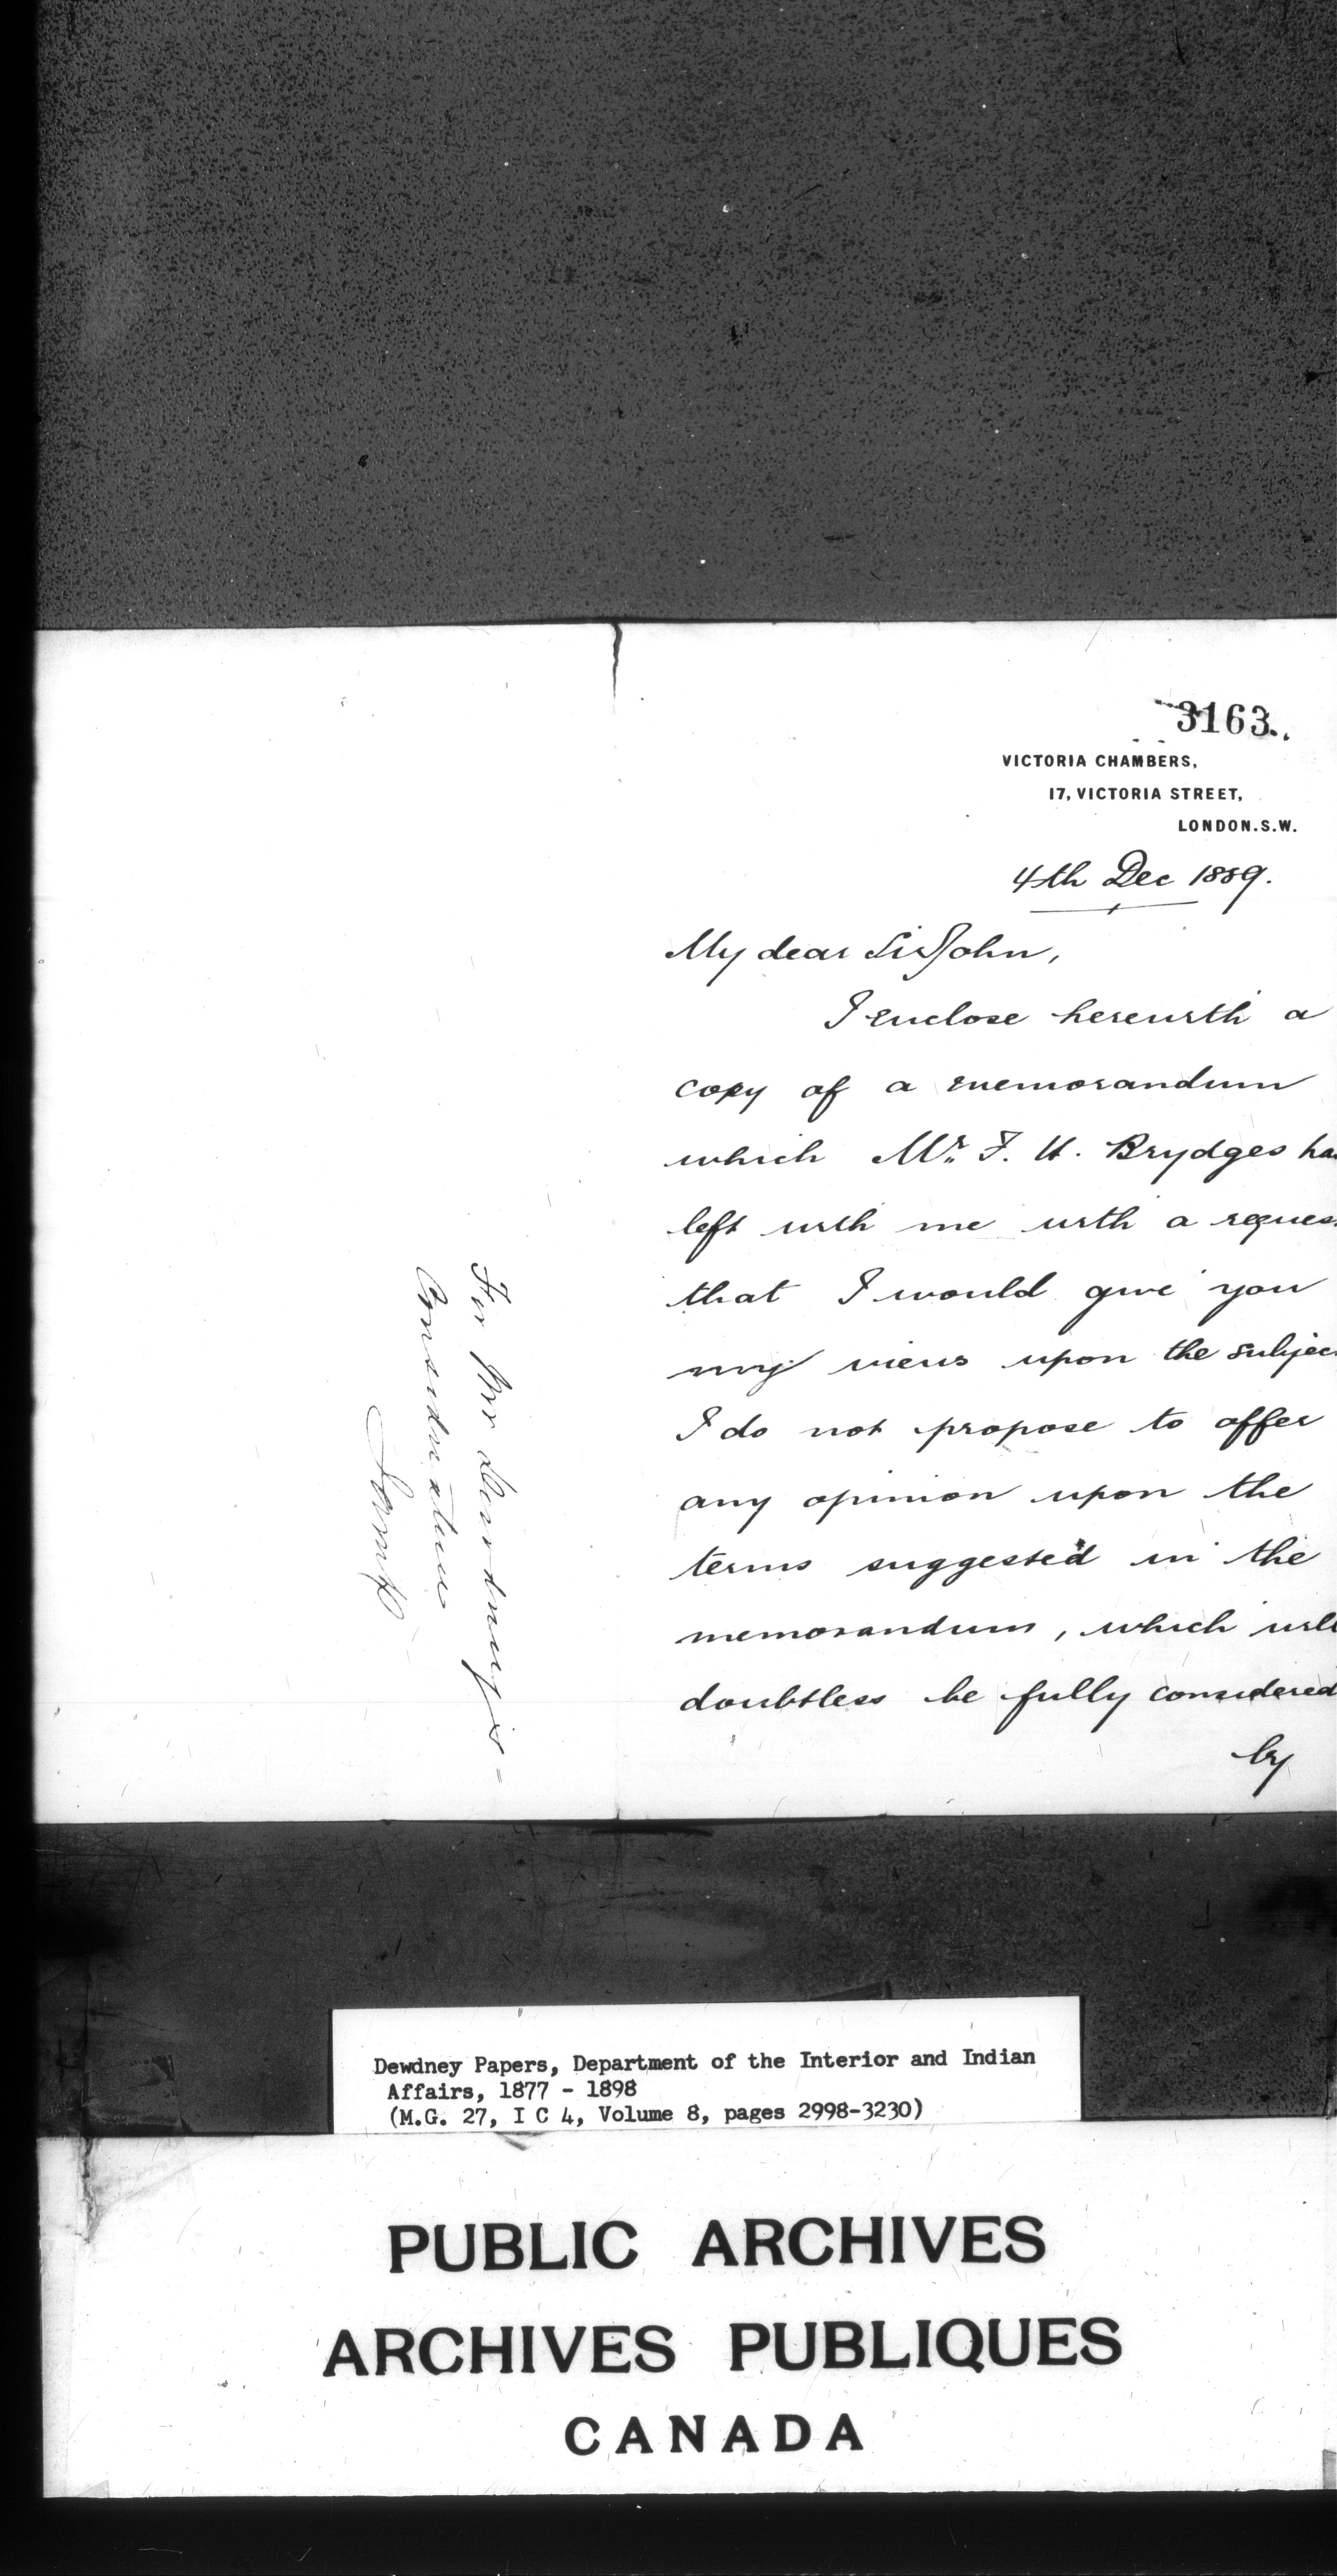 3163.
VICTORIA CHAMBERS,
17, VICTORIA STREET,
LONDON. S.W.
4th Dec 1889.
My dear Sir John,
I enclose herewith a
copy of a memorandum
which Mr. F. H. Brydges ha
left with me with a reques
that I would give you
my views upon the subjec
I do not propose to offer
any opinion upon the
terms suggested in the
memorandum, which will
doubtless be fully considered
by
For Mr Dewdney's
Consideration
Dewdney Papers, Department of the Interior and Indian
Affairs, 1877 - 1898
(M.G. 27, I C 4, Volume 8, pages 2998-3230)
PUBLIC ARCHIVES
ARCHIVES PUBLIQUES
CANADA